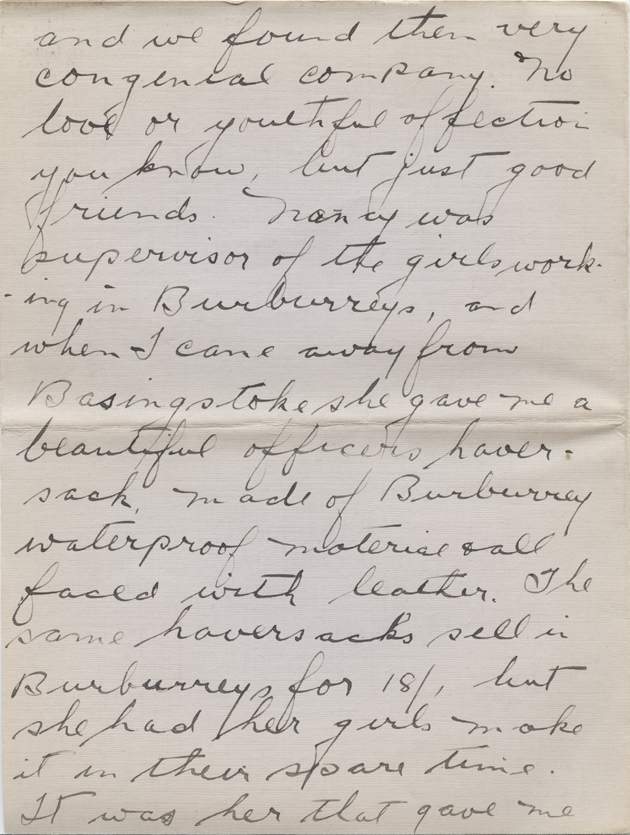 and we found them very
congenial company. No
love or youthful affection
you know, but just good
friends. Nancy was
supervisor of the girls work-
-ing in Burburreys, and
when I came away from
Basingstoke she gave me a
beautiful officers haver-
sack, made of Burburrey
waterproof material & all
faced with leather. The
same haversacks sell in
Burburreys for 18/, but
she had her girls make
it in their spare time.
It was her that gave me